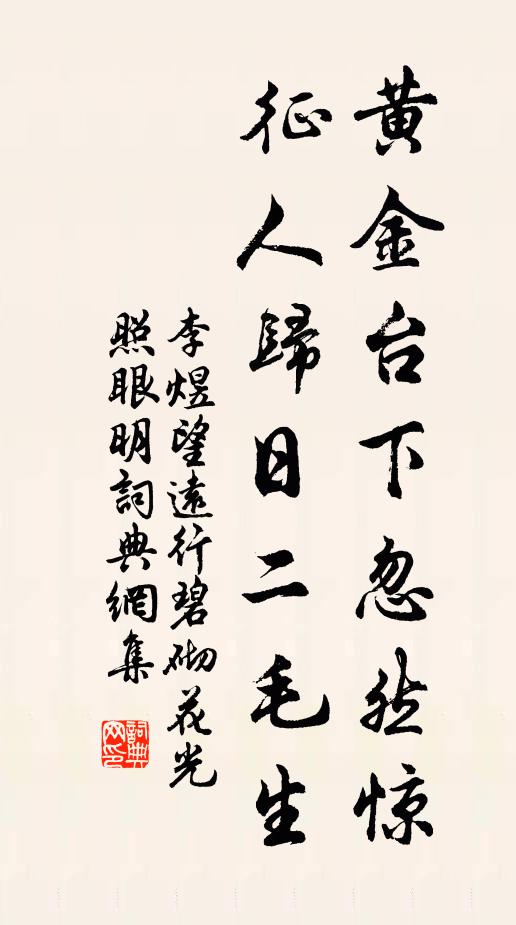 黄金台下忽然惊
征人歸日二毛生
李煜望遠行碧砌花光
照眼明詞典網集
詞典
网印